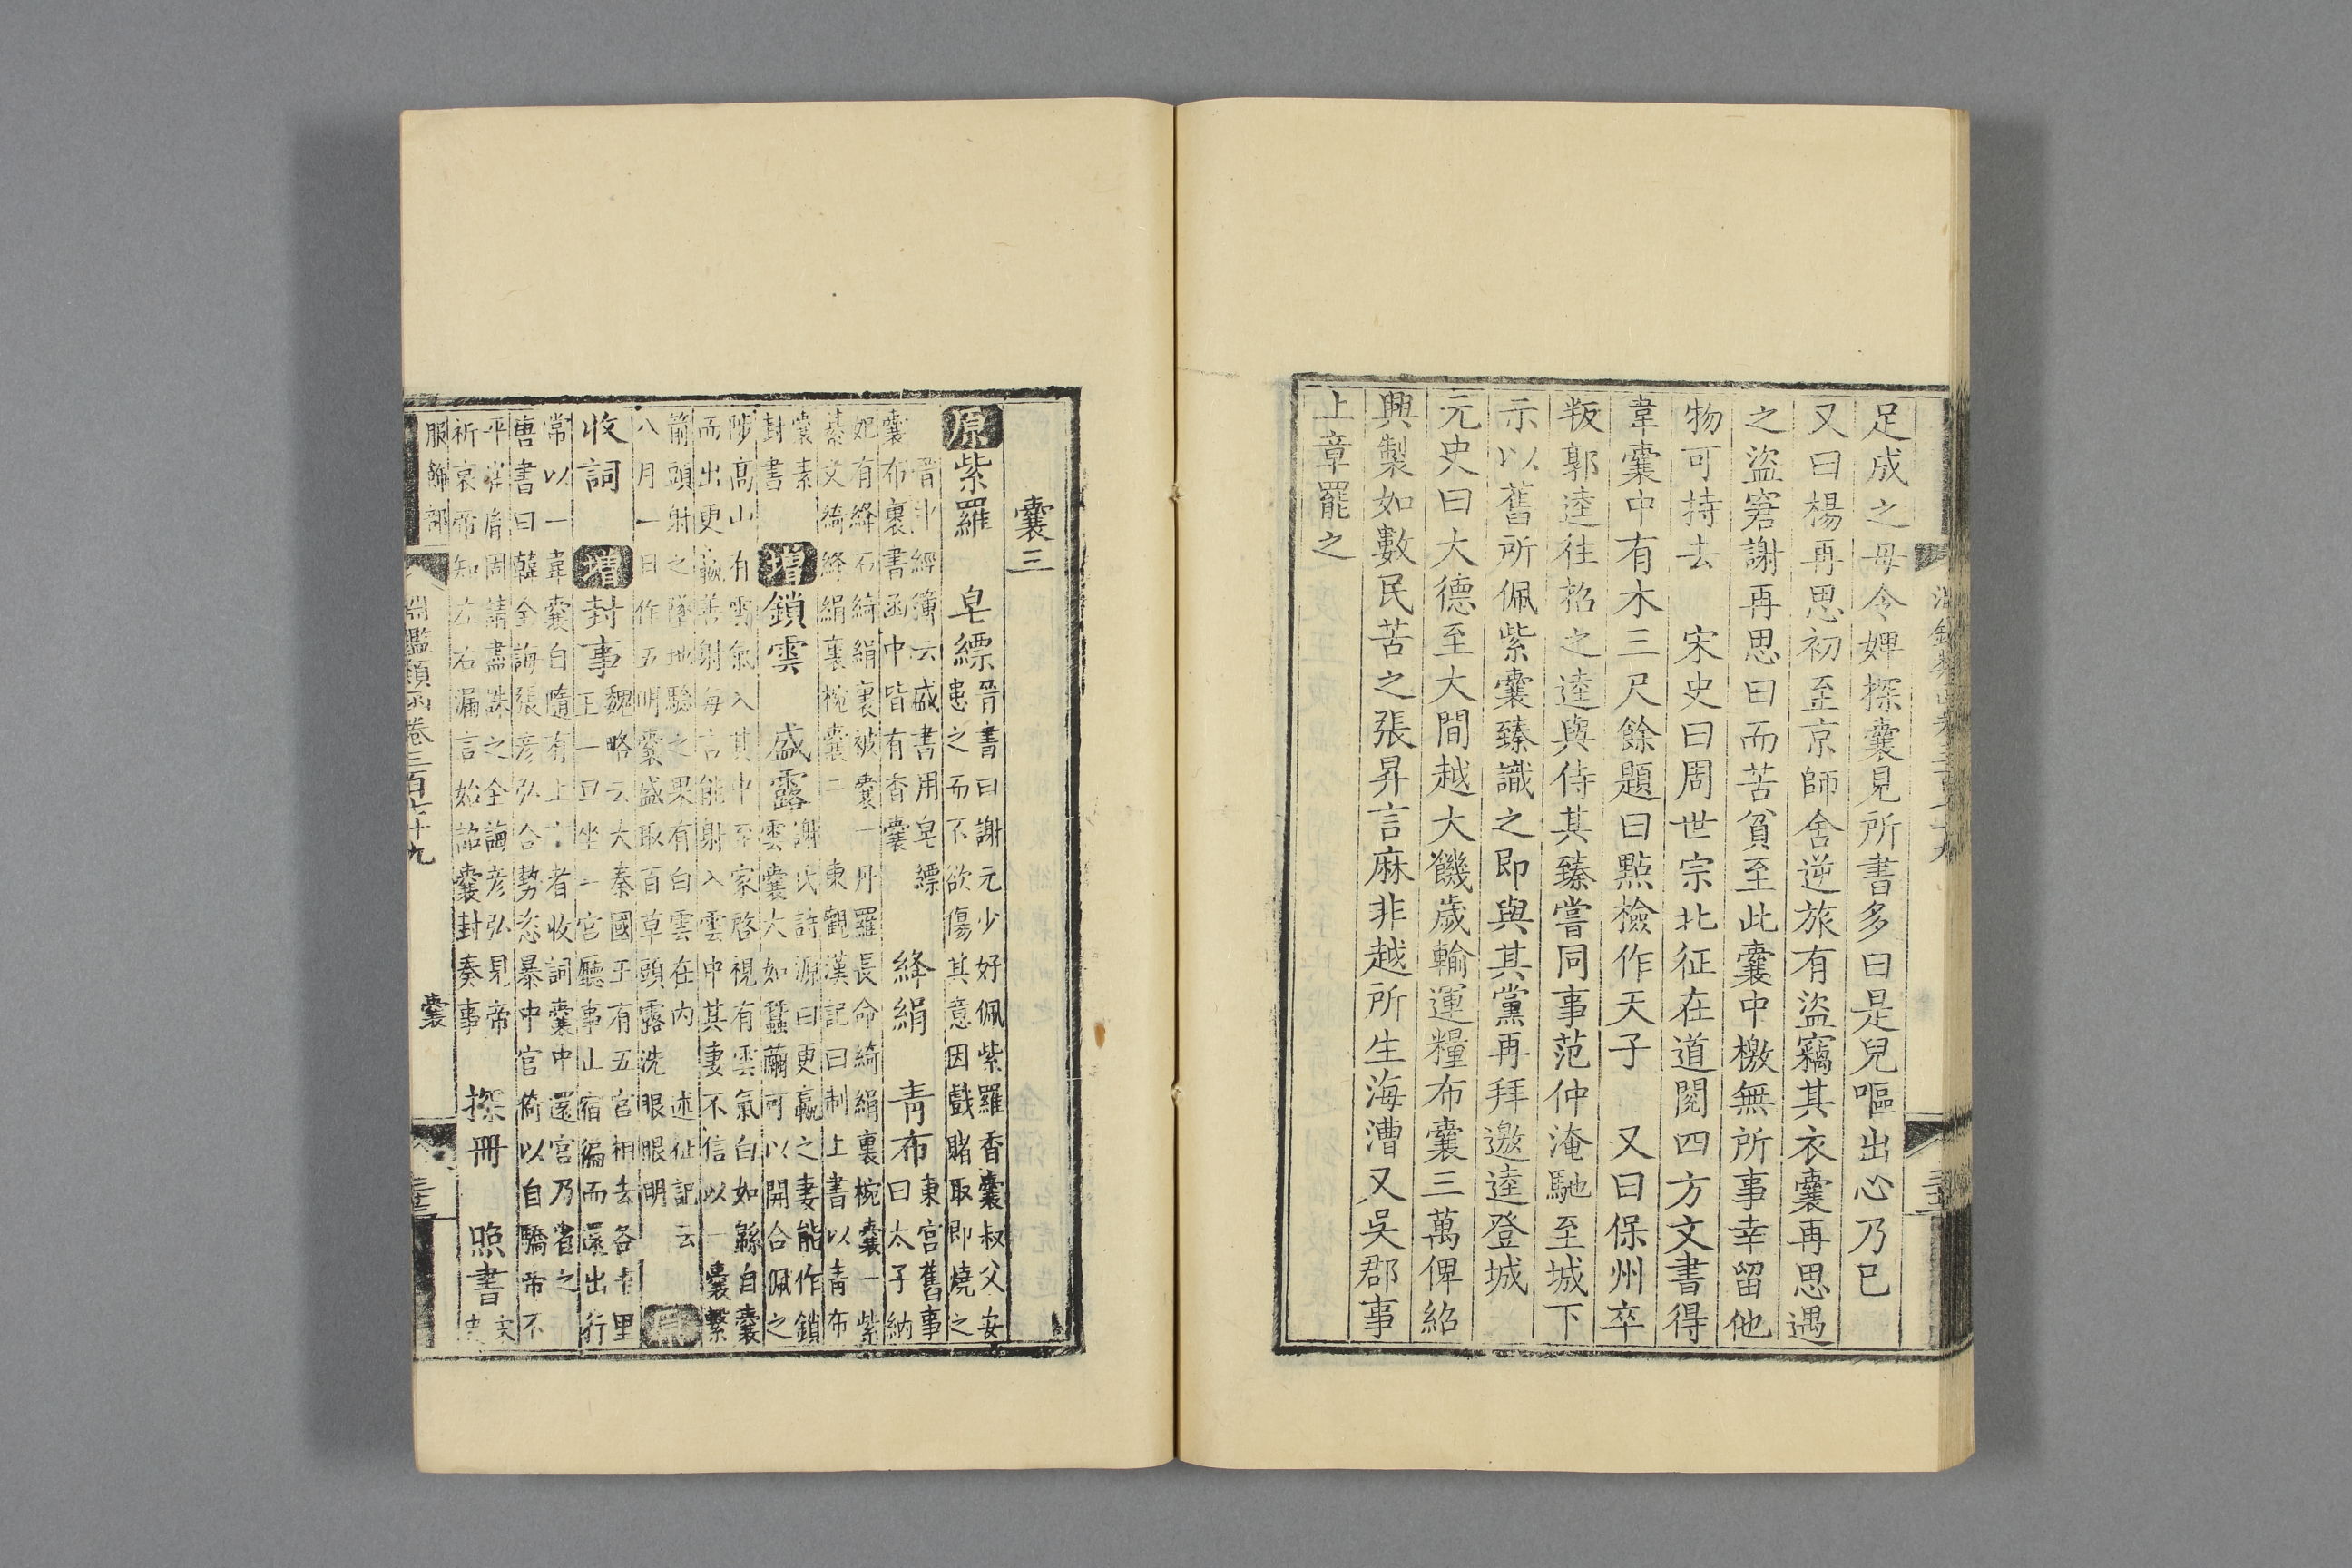 足成之母令婢探囊見所書多曰是兒嘔出心乃已
又曰楊再思初至京師舍逆旅有盜竊其衣囊再思遇
之盜窘謝再思曰而苦貧至此囊中檄無所事幸留他
物可持去　宋史曰周世宗北征在道閱四方文書得
韋囊中有木三尺餘題曰點檢作天子　又曰保州卒
叛郭逵往招之逵與侍其臻嘗同事范仲淹馳至城下
示以舊所佩紫囊臻識之即與其黨再拜邀逵登城
元史曰大德至大間越大饑歲輸運糧布囊三萬俾紹
興製如數民苦之張昇言麻非越所生海漕又吳郡事
上章罷之
囊三
原紫羅　皁縹晉書曰謝元少好佩紫羅香囊叔父安
患之而不欲傷其意因戲賭取即燒之
晉中經簿云盛書用皁縹
囊布裏書函中皆有香囊　絳絹　青布東宮舊事
曰太子納
妃有絳石綺絹裏被囊一丹羅長命綺絹裏椀囊一紫
綦文綺絳絹裏椀囊二　東觀漢記曰制上書以青布
囊素
封書　增鎖雲　盛露謝氏詩源曰更嬴之妻能作鎖
雲囊大如蠶繭可以開合佩之
陟高山有雲氣入其中至家啓視有雲氣白如緜自囊
而出更嬴善射每言能射入雲中其妻不信以一囊繫
箭頭射之墜地驗之果有白雲在內　述征記云
八月一日作五明囊盛取百草頭露洗眼眼明　原
收詞　增封事魏略云大秦國王有五宮相去各十里
王一旦坐一宮聽事止宿編而還出行
常以一韋囊自隨有上言者收詞囊中還宮乃省之
唐書曰韓全誨張彥弘合勢恣暴中官倚以自驕帝不
平崔胤請盡誅之全誨彥弘見帝
祈哀帝知左右漏言始詔囊封奏事　探冊　照書
服飾部
淵鑑類函卷三百七十九
囊